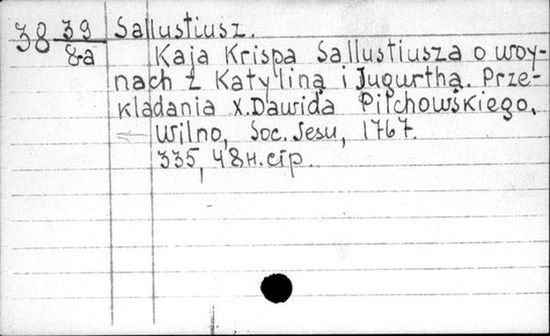 38 39 Sallustiusz.
8-a Kaja Krispa Sallustiusza o woy-
nach z Katyliną i Jugurthą. Prze-
kładania X.Dawida Pilchowskiego.
Wilno, Soc. Jesu, 1767.
335, 48н. стр.